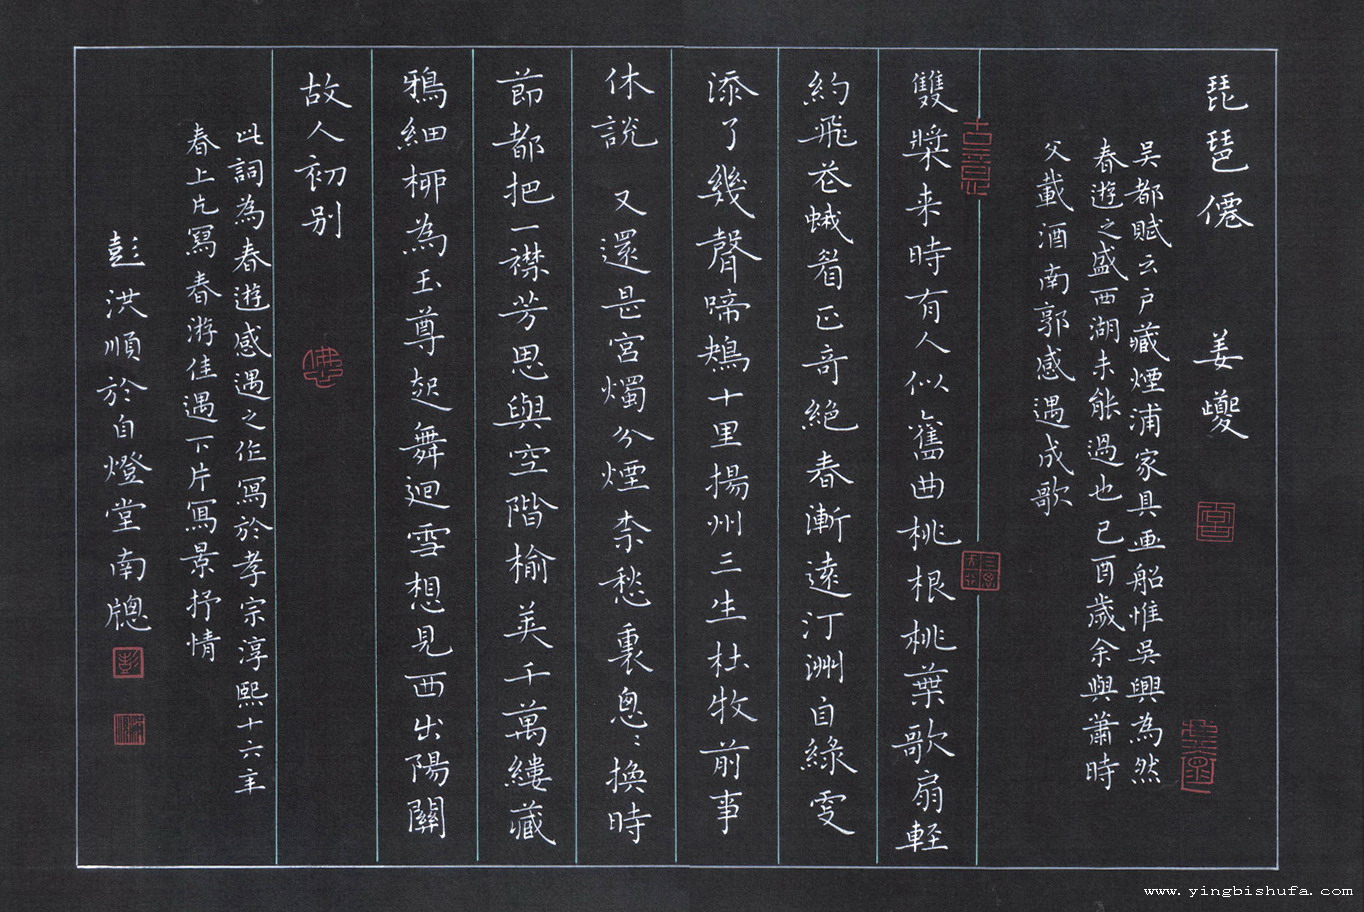 琵琶僊 姜夔
吳都賦云戶藏煙浦家具画船惟吳興為然
春遊之盛西湖未能過也己酉歲余與蕭時
父載酒南郭感遇成歌
雙槳来時有人似舊曲桃根桃葉歌扇輕
約飛花蛾眉正奇絕春漸遠汀洲自綠更
添了幾聲啼鴂十里揚州三生杜牧前事
休說 又還是宮燭分煙柰愁裏悤〻換時
節都把一襟芳思與空階榆莢千萬縷藏
鴉細柳為玉尊起舞迴雪想見西出陽關
故人初别
此詞為春遊感遇之作寫於孝宗淳熙十六年
春上片寫春游佳遇下片寫景抒情
彭洪順於自燈堂南牕
www.yingbishufa.com